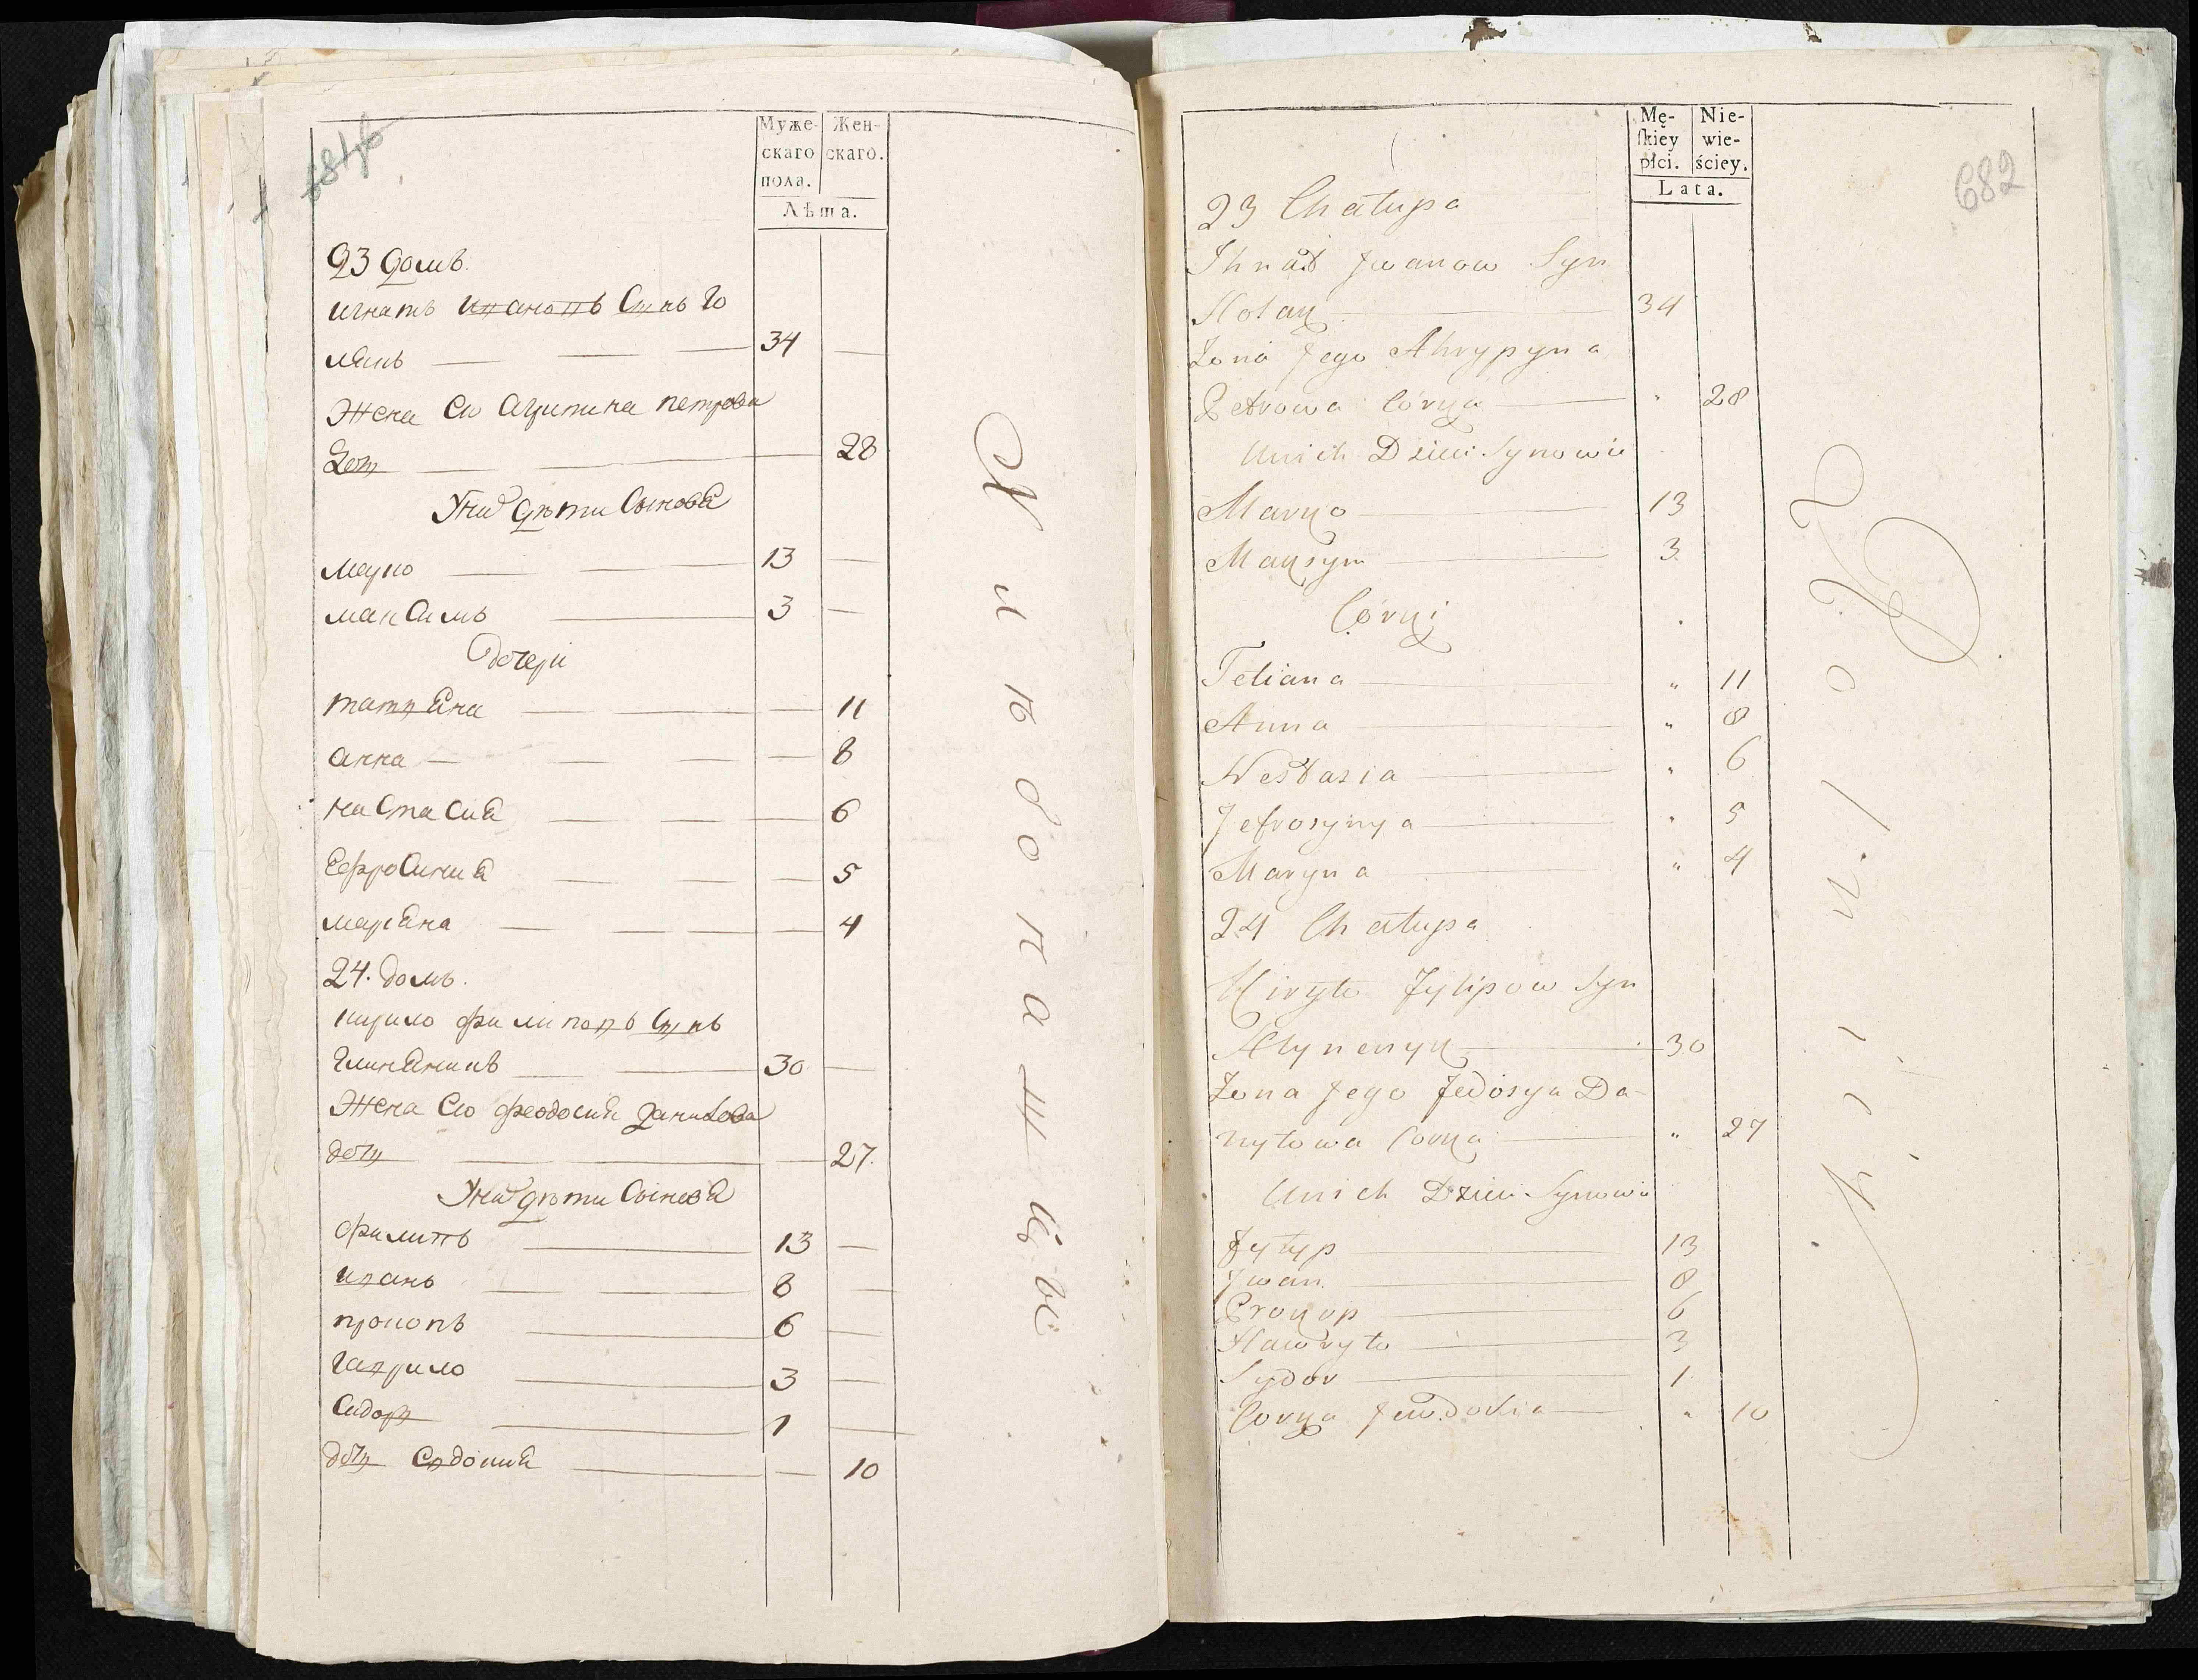 681об
Муже-
скаго
пола.
Жен-
скаго.
Лѣта.
23 домъ.
игнатъ ивановъ Синъ Го
лякъ 34
Жена Ею Агрипина петрова
дочь 28
У них дѣти Сынове
марко 13
максимъ 3
дочери
татияна 11
анна 8
настасия 6
Ефросиния 5
марина 4
24. домъ.
кирило филиповъ Синъ
30
Жена Ею феодосия данилова
дочь 27.
У них дѣти Сынове
филипъ 13
иванъ 8
прокопъ 6
гаврило 3
Сидоръ 1
дочь Евдокия 10
682
Mę-
skiey
płci.
Nie-
wie-
ściey.
Lata.
23 Chałupa
Ihnat Jwanow Syn
Holak 34
Żona Jego Ahrypyna
Petrowa Córka " 28
Unich Dzieci Synowie
Marko 13
Maksym 3
Córki
Tetiana " 11
Anna " 8
Nestazia " 6
Jefrosynya " 5
Maryna " 4
24 Chałupa
Kiryło Fylipow Syn
Hlynenyk 30
Żona Jego Fedosya Da-
nyłowa Corka " 27
Unich Dzieci Synowie
Fylyp 13
Jwan 8
Prokop 6
Hawryło 3
Sydor 1
Corka Jewdokia " 10